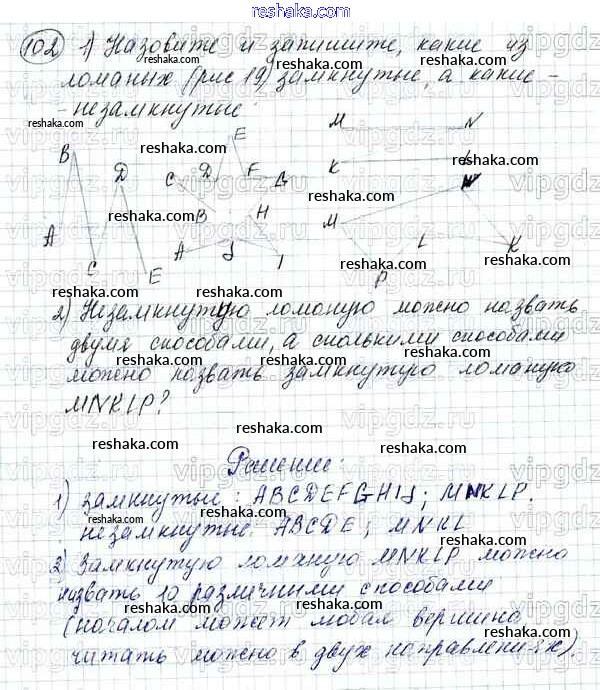 reshaka.com
102 1) Назовите и запишите, какие из
ломаных (рис 19) замкнутые, а какие -
- незамкнутые:
B D C D E F G M N
K L
A C E B H M N
A J I P L K
2) Незамкнутую ломаную можно назвать
двумя способами, а сколькими способами
можно назвать замкнутую ломаную
MNKLP?
Решение:
1) замкнутые: ABCDEFGHIJ; MNKLP.
незамкнутые: ABCDE; MNKL
2) Замкнутую ломаную MNKLP можно
назвать 10 различными способами
(началом может любая вершина,
читать можно в двух направлениях).